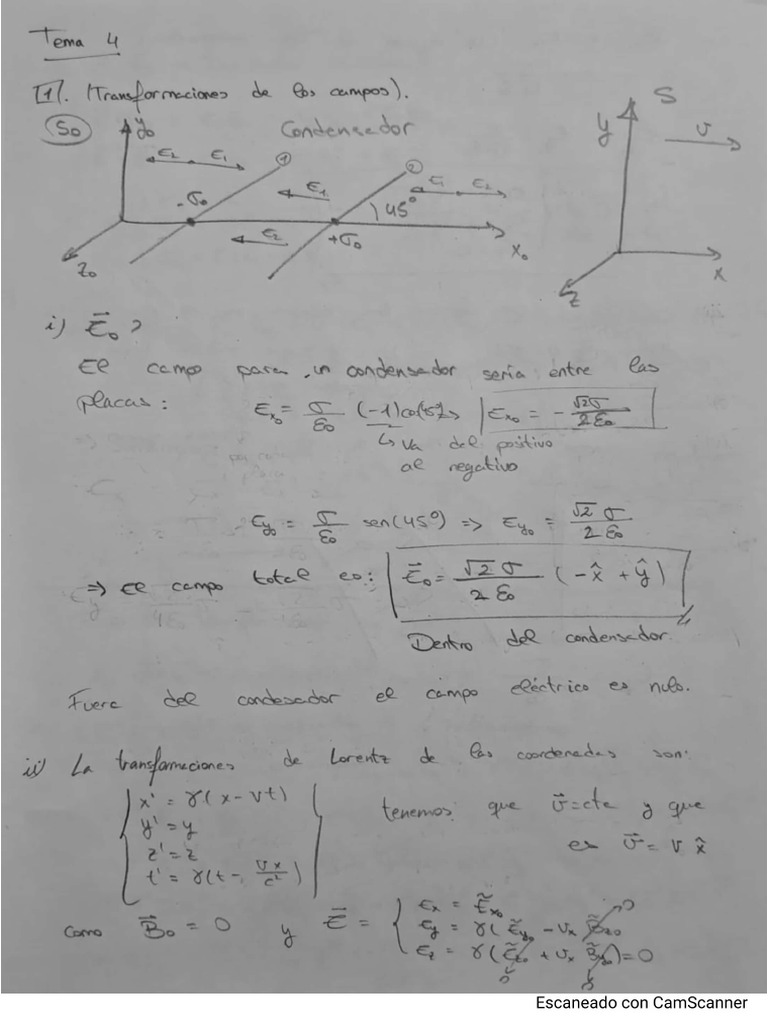 Tema 4
[1]. (Transformaciones de los campos).
S₀ y₀ Condensador S
y v
E₂ E₁ ① ②
-σ₀ E₁ E₁ E₂
45°
E₂ +σ₀
z₀ x₀ x
z
i) E⃗₀ ?
El campo para un condensador sería entre las
placas: Eₓ₀ = σ/ε₀ (-1)cos(45°) → Eₓ₀ = - √2σ/2ε₀
↳ va del positivo
al negativo
Ey₀ = σ/ε₀ sen(45°) => Ey₀ = √2 σ/2 ε₀
=> El campo total es: E⃗₀ = √2 σ/2 ε₀ (-x̂ + ŷ)
Dentro del condensador.
Fuera del condesador el campo eléctrico es nulo.
ii) La transfamaciones de Lorentz de las coordenadas son:
x' = γ(x - vt)
y' = y
z' = z
t' = γ(t - vx/c²)
tenemos que v⃗=cte y que
es v⃗ = v x̂
como B⃗₀ = 0 y E⃗ =
Eₓ = Ẽₓ₀
Ey = γ(Ẽy₀ - vₓ B̃z₀) 0
Ez = γ(Ẽz₀ + vₓ B̃y₀) = 0
0 0
Escaneado con CamScanner